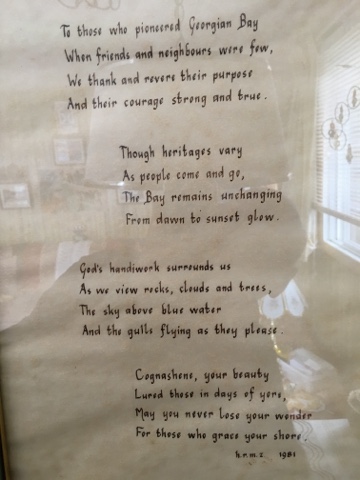 To those who pioneered Georgian Bay
When friends and neighbours were few,
We thank and revere their purpose
And their courage strong and true.
Though heritages vary
As people come and go,
The Bay remains unchanging
From dawn to sunset glow.
God's handiwork surrounds us
As we view rocks, clouds and trees,
The sky above blue water
And the gulls flying as they please.
Cognashene, your beauty
Lured those in days of yore,
May you never lose your wonder
For those who grace your shore.
1981